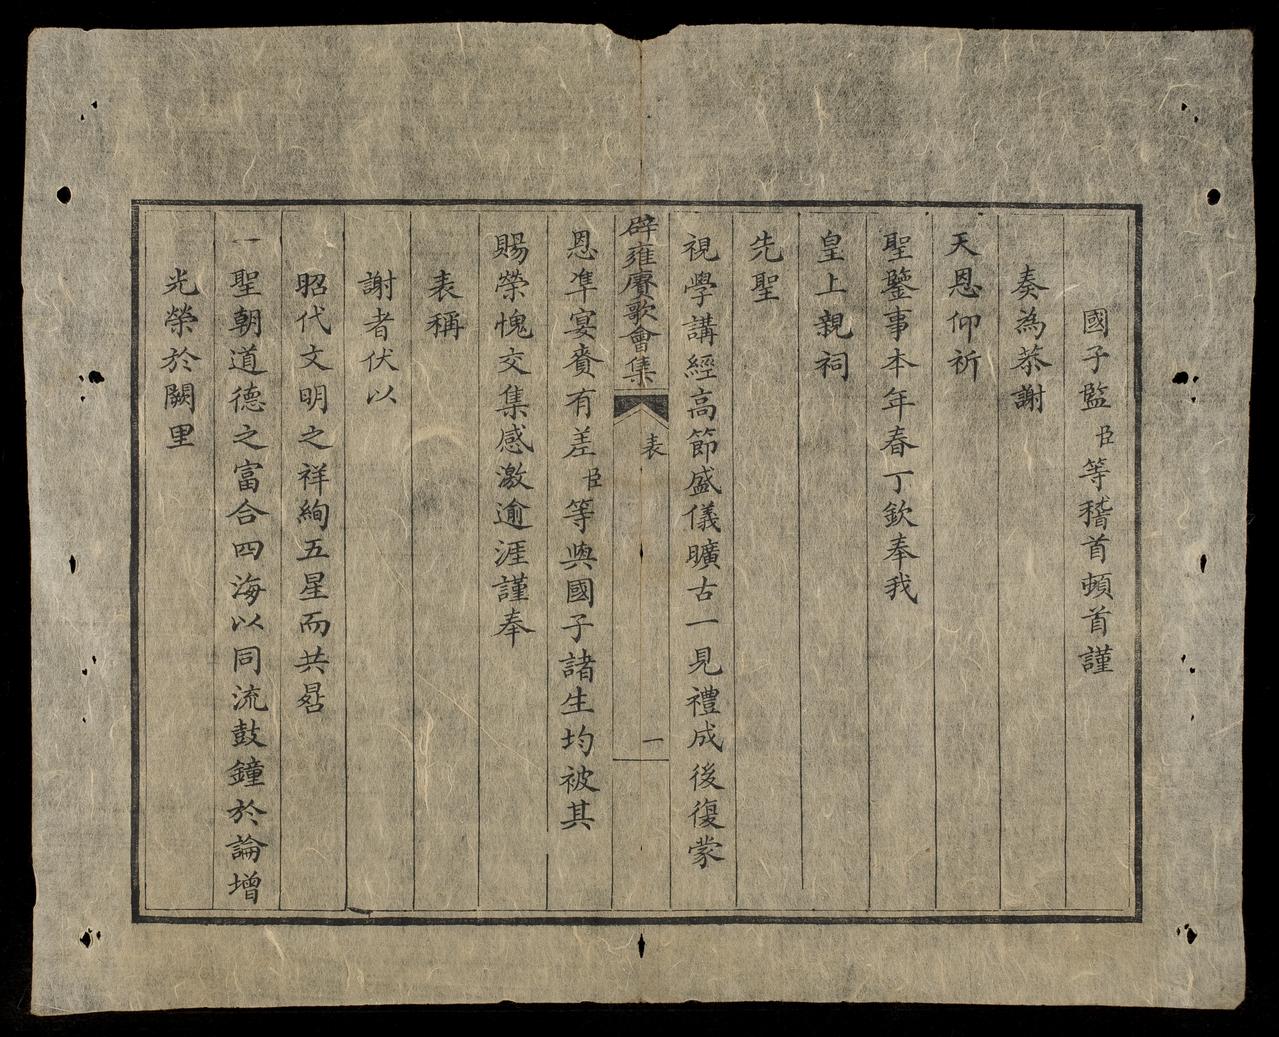 國子監臣等稽首頓首謹
奏為恭謝
天恩仰祈
聖鑒事本年春丁欽奉我
皇上親祠
先聖
視學講經高節盛儀曠古一見禮成後復蒙
辟雍賡歌會集
表
一
恩準宴賚有差臣等與國子諸生均被其
賜榮愧交集感激逾涯謹奉
表稱
謝者伏以
昭代文明之祥絢五星而共晷
聖朝道德之富合四海以同流鼓鐘於論增
光榮於闕里